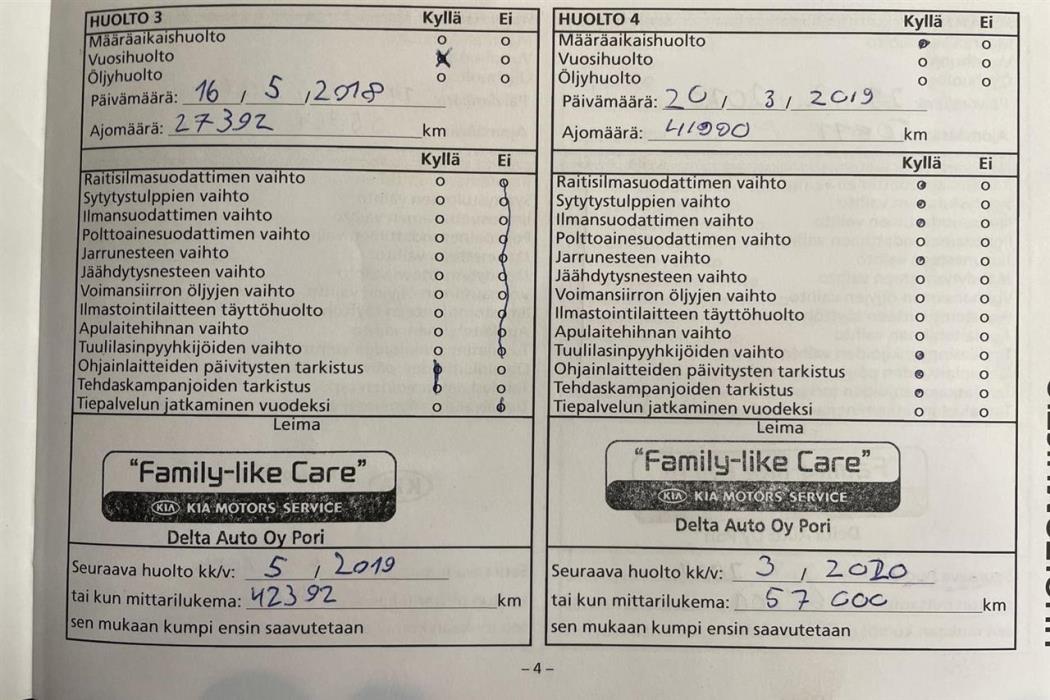 HUOLTO 3 Kyllä Ei
Määräaikaishuolto
Vuosihuolto
Öljyhuolto
Päivämäärä: 16 / 5 / 2018
Ajomäärä: 27392 km
Kyllä Ei
Raitisilmasuodattimen vaihto
Sytytystulppien vaihto
Ilmansuodattimen vaihto
Polttoainesuodattimen vaihto
Jarrunesteen vaihto
Jäähdytysnesteen vaihto
Voimansiirron öljyjen vaihto
Ilmastointilaitteen täyttöhuolto
Apulaitehihnan vaihto
Tuulilasinpyyhkijöiden vaihto
Ohjainlaitteiden päivitysten tarkistus
Tehdaskampanjoiden tarkistus
Tiepalvelun jatkaminen vuodeksi
Leima
“Family-like Care”
KIA KIA MOTORS SERVICE
Delta Auto Oy Pori
Seuraava huolto kk/v: 5 / 2019
tai kun mittarilukema: 42392 km
sen mukaan kumpi ensin saavutetaan
HUOLTO 4 Kyllä Ei
Määräaikaishuolto
Vuosihuolto
Öljyhuolto
Päivämäärä: 20 / 3 / 2019
Ajomäärä: 41900 km
Kyllä Ei
Raitisilmasuodattimen vaihto
Sytytystulppien vaihto
Ilmansuodattimen vaihto
Polttoainesuodattimen vaihto
Jarrunesteen vaihto
Jäähdytysnesteen vaihto
Voimansiirron öljyjen vaihto
Ilmastointilaitteen täyttöhuolto
Apulaitehihnan vaihto
Tuulilasinpyyhkijöiden vaihto
Ohjainlaitteiden päivitysten tarkistus
Tehdaskampanjoiden tarkistus
Tiepalvelun jatkaminen vuodeksi
Leima
“Family-like Care”
KIA KIA MOTORS SERVICE
Delta Auto Oy Pori
Seuraava huolto kk/v: 3 / 2020
tai kun mittarilukema: 57 000 km
sen mukaan kumpi ensin saavutetaan
– 4 –